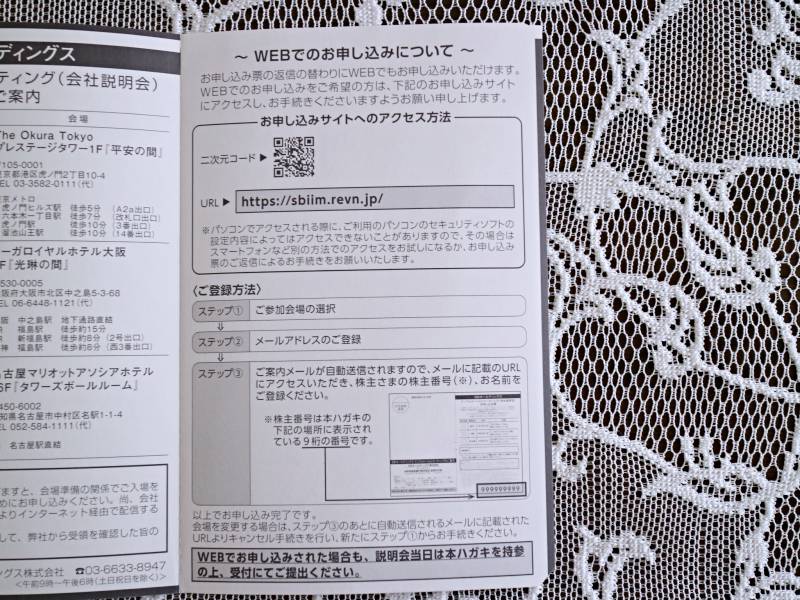 ディングス
ティング(会社説明会)
ご案内
会場
The Okura Tokyo
プレステージタワー1F『平安の間』
〒105-0001
東京都港区虎ノ門2丁目10-4
TEL 03-3582-0111(代)
東京メトロ
虎ノ門ヒルズ駅 徒歩5分 (A2a出口)
六本木一丁目駅 徒歩7分 (改札口出口)
虎ノ門駅 徒歩10分 (3番出口)
溜池山王駅 徒歩10分 (14番出口)
ーガロイヤルホテル大阪
F『光琳の間』
530-0005
大阪府大阪市北区中之島5-3-68
TEL 06-6448-1121(代)
阪 中之島駅 地下通路直結
福島駅 徒歩約15分
新福島駅 徒歩約8分 (2号出口)
神 福島駅 徒歩約8分 (西3番出口)
名古屋マリオットアソシアホテル
6F『タワーズボールルーム』
450-6002
知県名古屋市中村区名駅1-1-4
TEL 052-584-1111(代)
名古屋駅直結
ますと、会場準備の関係でご入場を
めにお申し込みください。尚、会社
よりインターネット経由で配信する
して、弊社から受領を確認した旨の
ングス株式会社 ☎03-6633-8947
<午前9時~午後6時(土日祝日を除く)>
~ WEBでのお申し込みについて ~
お申し込み票の返信の替わりにWEBでもお申し込みいただけます。
WEBでのお申し込みをご希望の方は、下記のお申し込みサイト
にアクセスし、お手続きくださいますようお願い申し上げます。
お申し込みサイトへのアクセス方法
二次元コード▶
URL▶ https://sbiim.revn.jp/
※パソコンでアクセスされる際に、ご利用のパソコンのセキュリティソフトの
設定内容によってはアクセスできないことがありますので、その場合は
スマートフォンなど別の方法でのアクセスをお試しになるか、お申し込み
票のご返信によるお手続きをお願いいたします。
〈ご登録方法〉
ステップ① ご参加会場の選択
⇓
ステップ② メールアドレスのご登録
⇓
ステップ③ ご案内メールが自動送信されますので、メールに記載のURL
にアクセスいただき、株主さまの株主番号(※)、お名前を
ご登録ください。
※株主番号は本ハガキの
下記の場所に表示され
ている9桁の番号です。
999999999
以上でお申し込み完了です。
会場を変更する場合は、ステップ③のあとに自動送信されるメールに記載された
URLよりキャンセル手続きを行い、新たにステップ①からお手続きください。
WEBでお申し込みされた場合も、説明会当日は本ハガキを持参
の上、受付にてご提出ください。